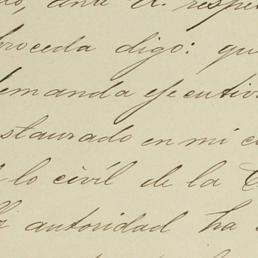 ante V. respe
proceda digo: qu
demanda ejecutiv
staurado en mi c
lo civíl de la C
autoridad ha